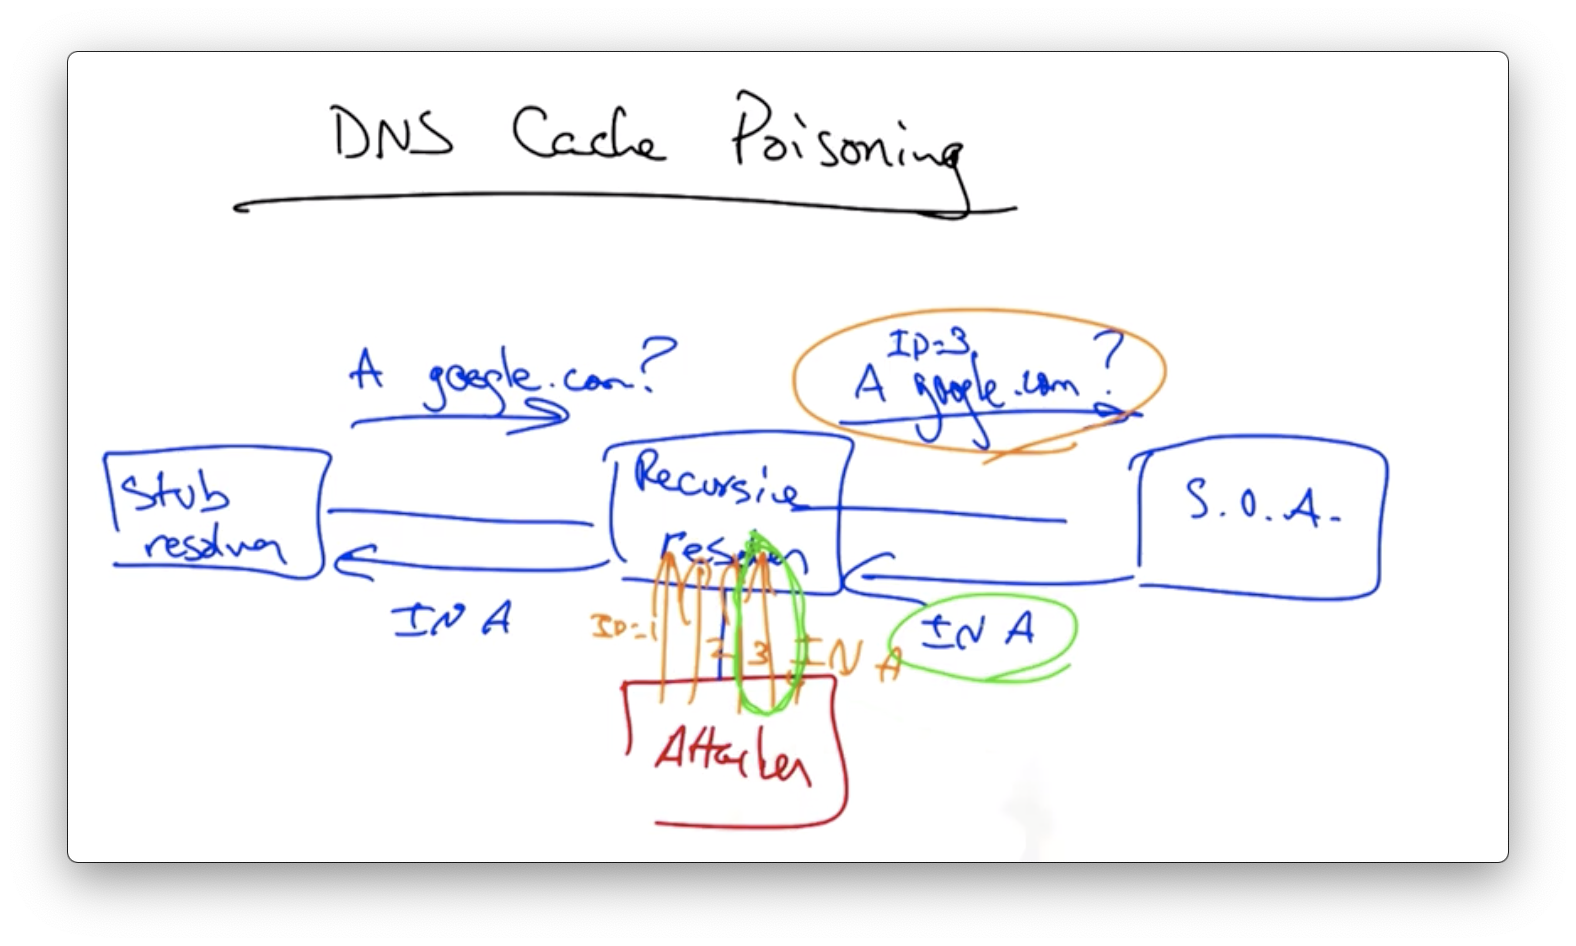 DNS Cache Poisoning
A google.com?
ID=3
A google.com?
Stub
resolver
Recursive
resolver
S.O.A.
IN A
ID=1
2
3
IN A
IN A
Attacker